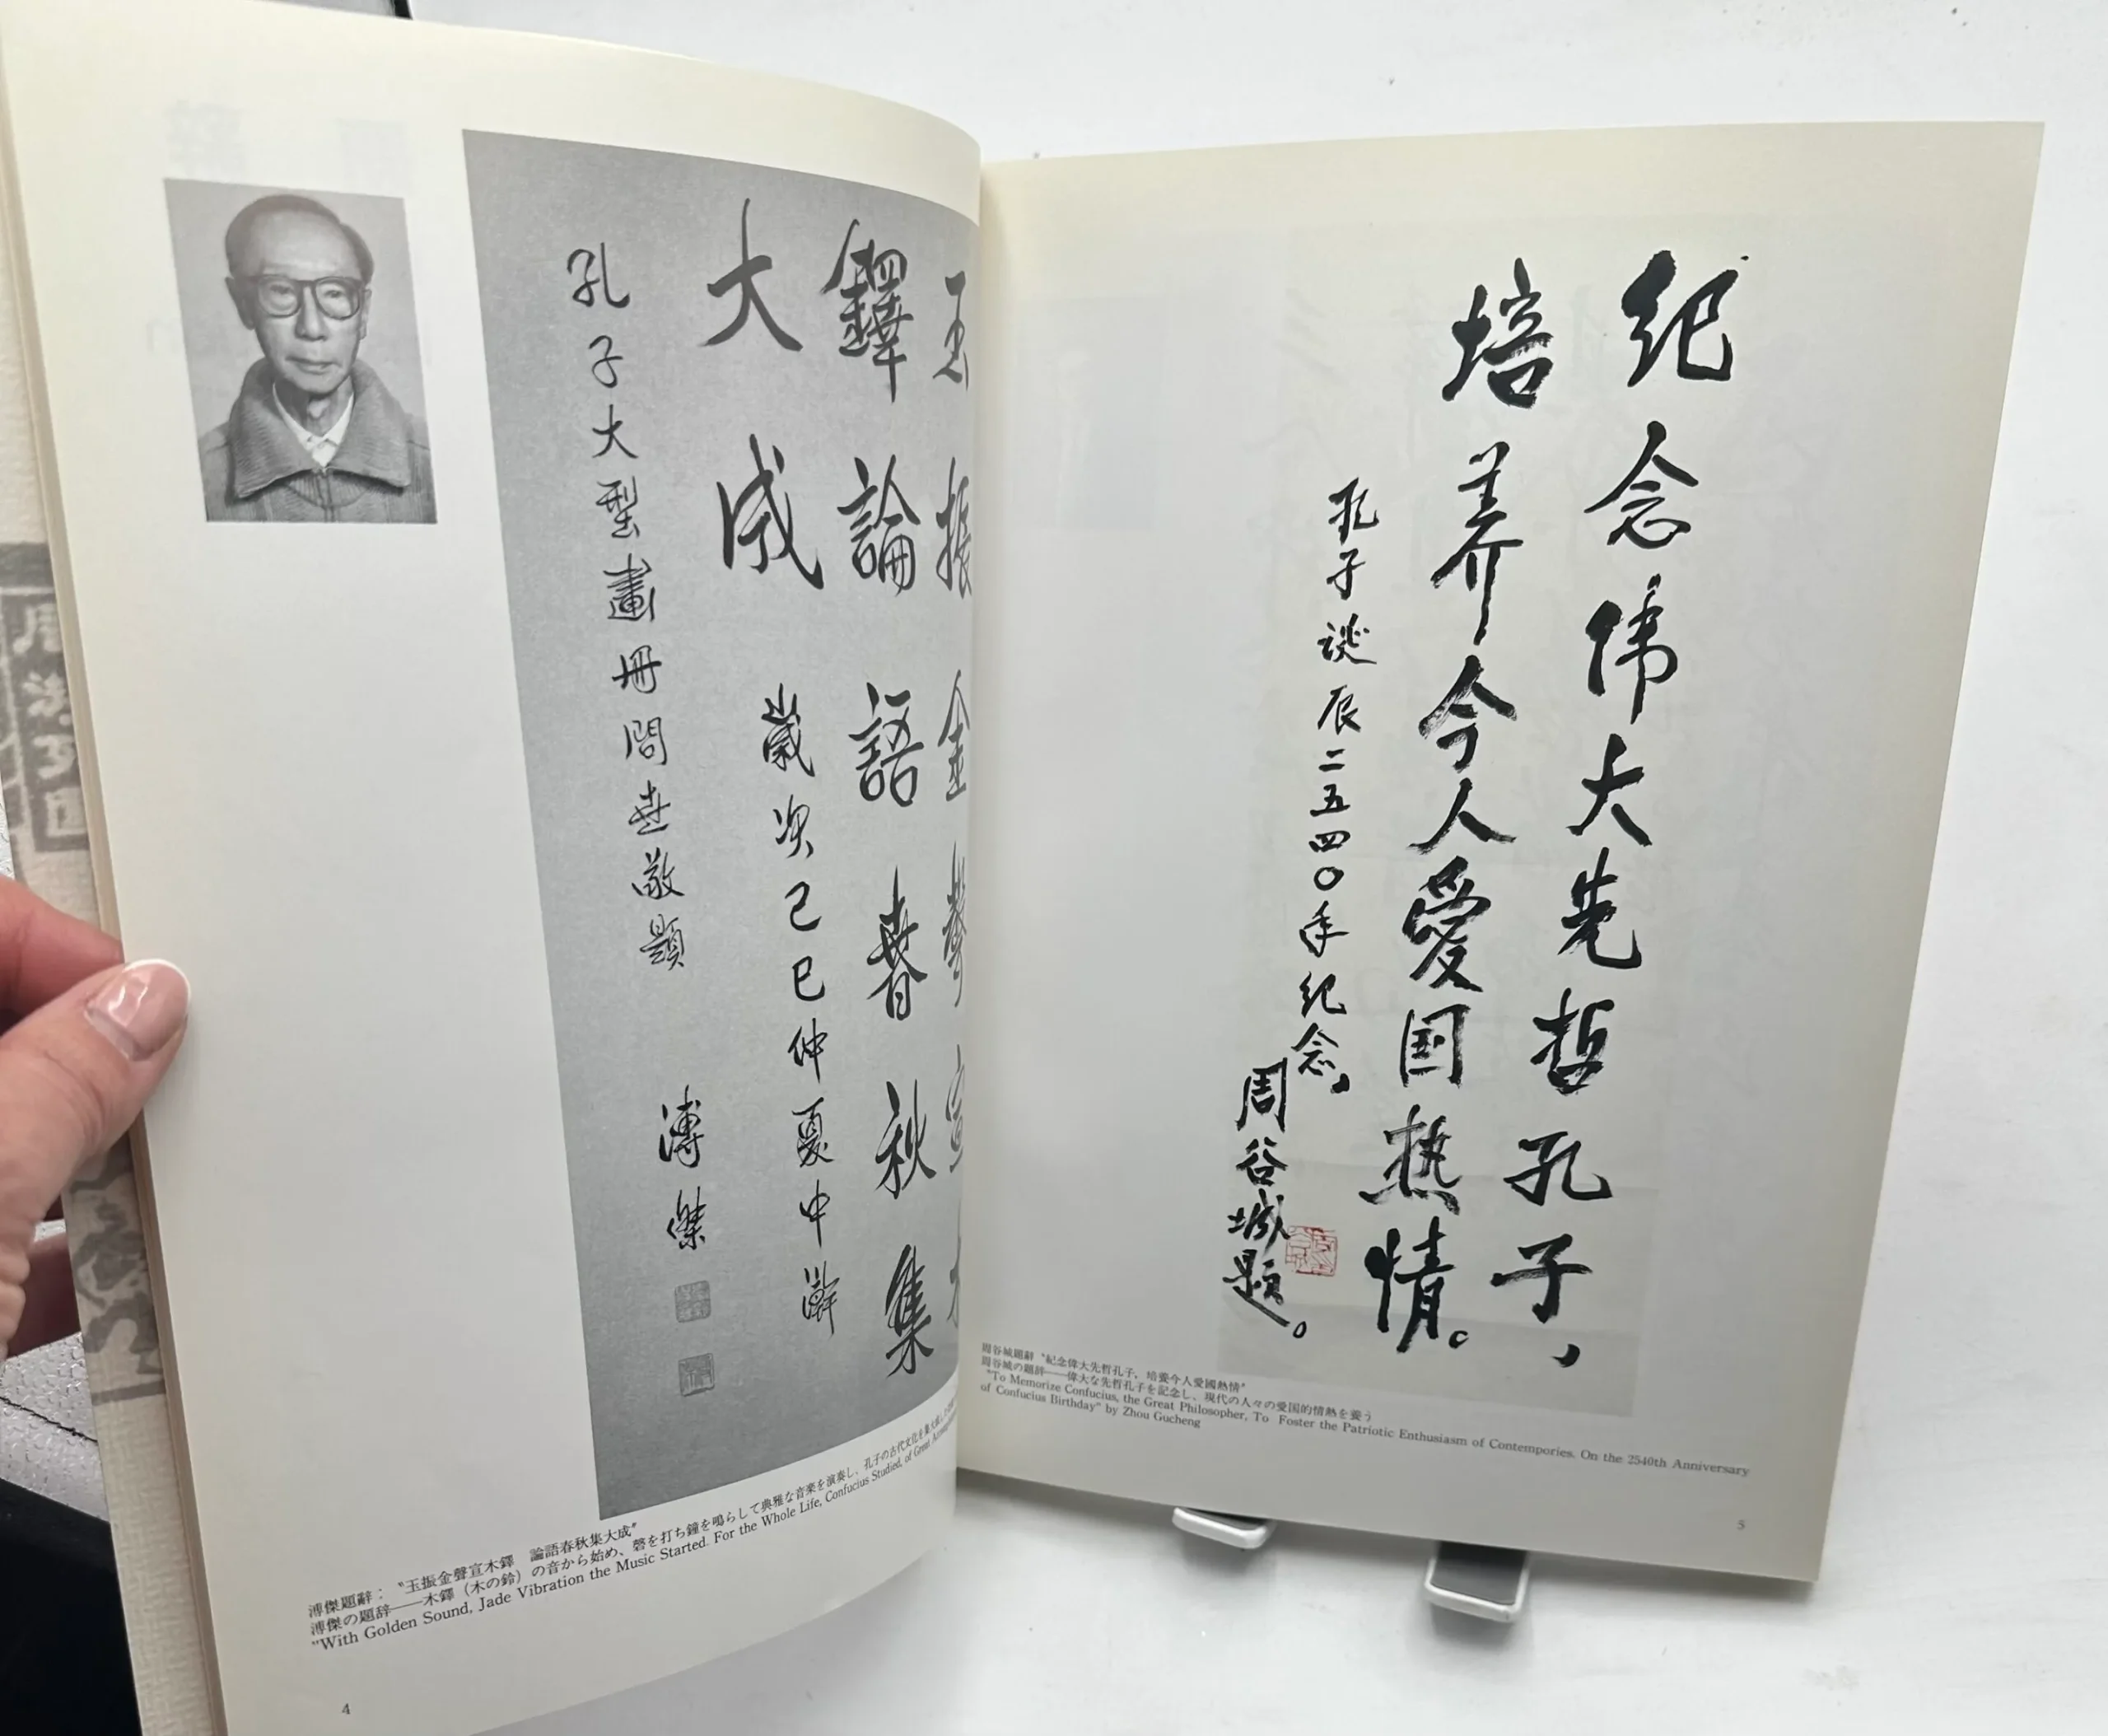 玉振金聲宣木
鐸論語春秋集
大成
歲次己巳仲夏中澣
孔子大型畫冊問世敬題
溥傑
溥傑題辭：“玉振金聲宣木鐸　論語春秋集大成”
溥傑の題辞——木鐸（木の鈴）の音から始め、磬を打ち鐘を鳴らして典雅な音楽を演奏し、孔子の古代文化を集大成し
"With Golden Sound, Jade Vibration the Music Started. For the Whole Life, Confucius Studied, of Great
4
纪念伟大先哲孔子，
培养今人爱国热情。
孔子诞辰二五四〇年纪念，
周谷城题。
周谷城題辭“紀念偉大先哲孔子，培養今人愛國熱情”
周谷城の題辞——偉大な先哲孔子を記念し、現代の人々の愛国的情熱を養う
"To Memorize Confucius, the Great Philosopher, To Foster the Patriotic Enthusiasm of Contempories. On the 2540th Anniversary
of Confucius Birthday" by Zhou Gucheng
5